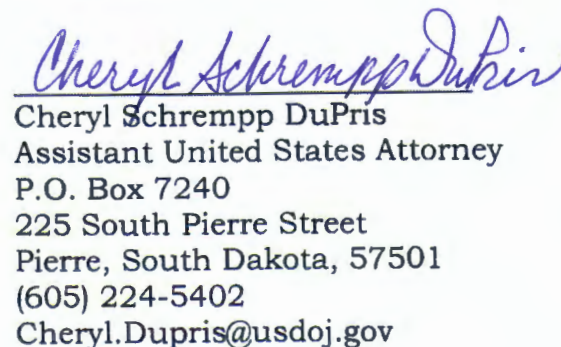 Cheryl Schrempp DuPris
Cheryl Schrempp DuPris
Assistant United States Attorney
P.O. Box 7240
225 South Pierre Street
Pierre, South Dakota, 57501
(605) 224-5402
Cheryl.Dupris@usdoj.gov